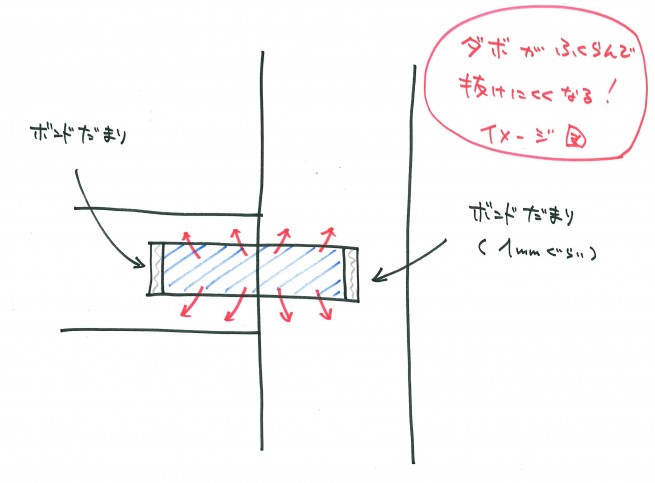 ダボがふくらんで
抜けにくくなる！
イメージ図
ボンドだまり
ボンドだまり
（1mmぐらい）